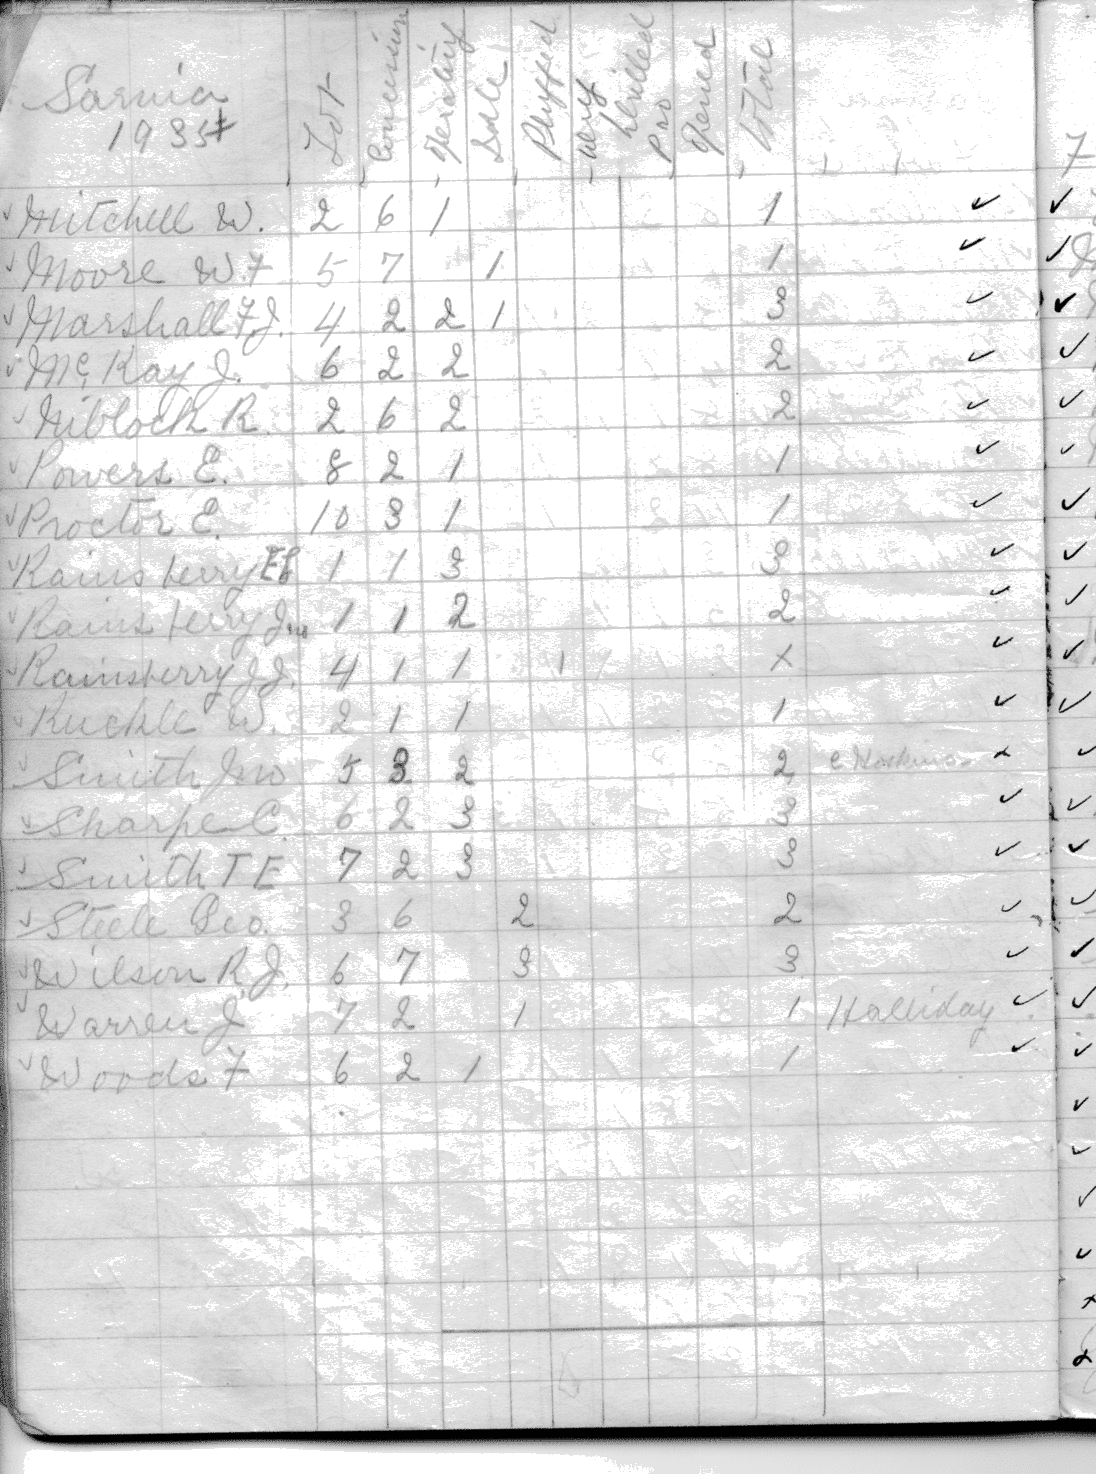 Sarnia Lot Concession Operating Idle Plugged Drilled Pro Opened Total
1935
✓ Mitchell W. 2 6 1 1 ✓
✓ Moore W F 5 7 1 1 ✓
✓ Marshall F J. 4 2 2 1 3 ✓
✓ Mc Kay J. 6 2 2 2 ✓
✓ Niblock R. 2 6 2 2 ✓
✓ Powers E. 8 2 1 1 ✓
✓ Proctor E. 10 3 1 1 ✓
✓ Rainsberry 1 1 3 3 ✓
Rainsberry Jno 1 1 2 2 ✓
✓ Rainsberry J J. 4 1 1 1 x ✓
Ruckle W. 2 1 1 1 ✓
✓ Smith Jno 5 3 2 2
✓ Sharpe C. 6 2 3 3 ✓
✓ Smith T E 7 2 3 3 ✓
✓ Steele Geo. 3 6 2 2 ✓
✓ Wilson R J. 6 7 3 3 ✓
✓ Warren J 7 2 1 1 Halliday ✓
✓ Woods F 6 2 1 1 ✓